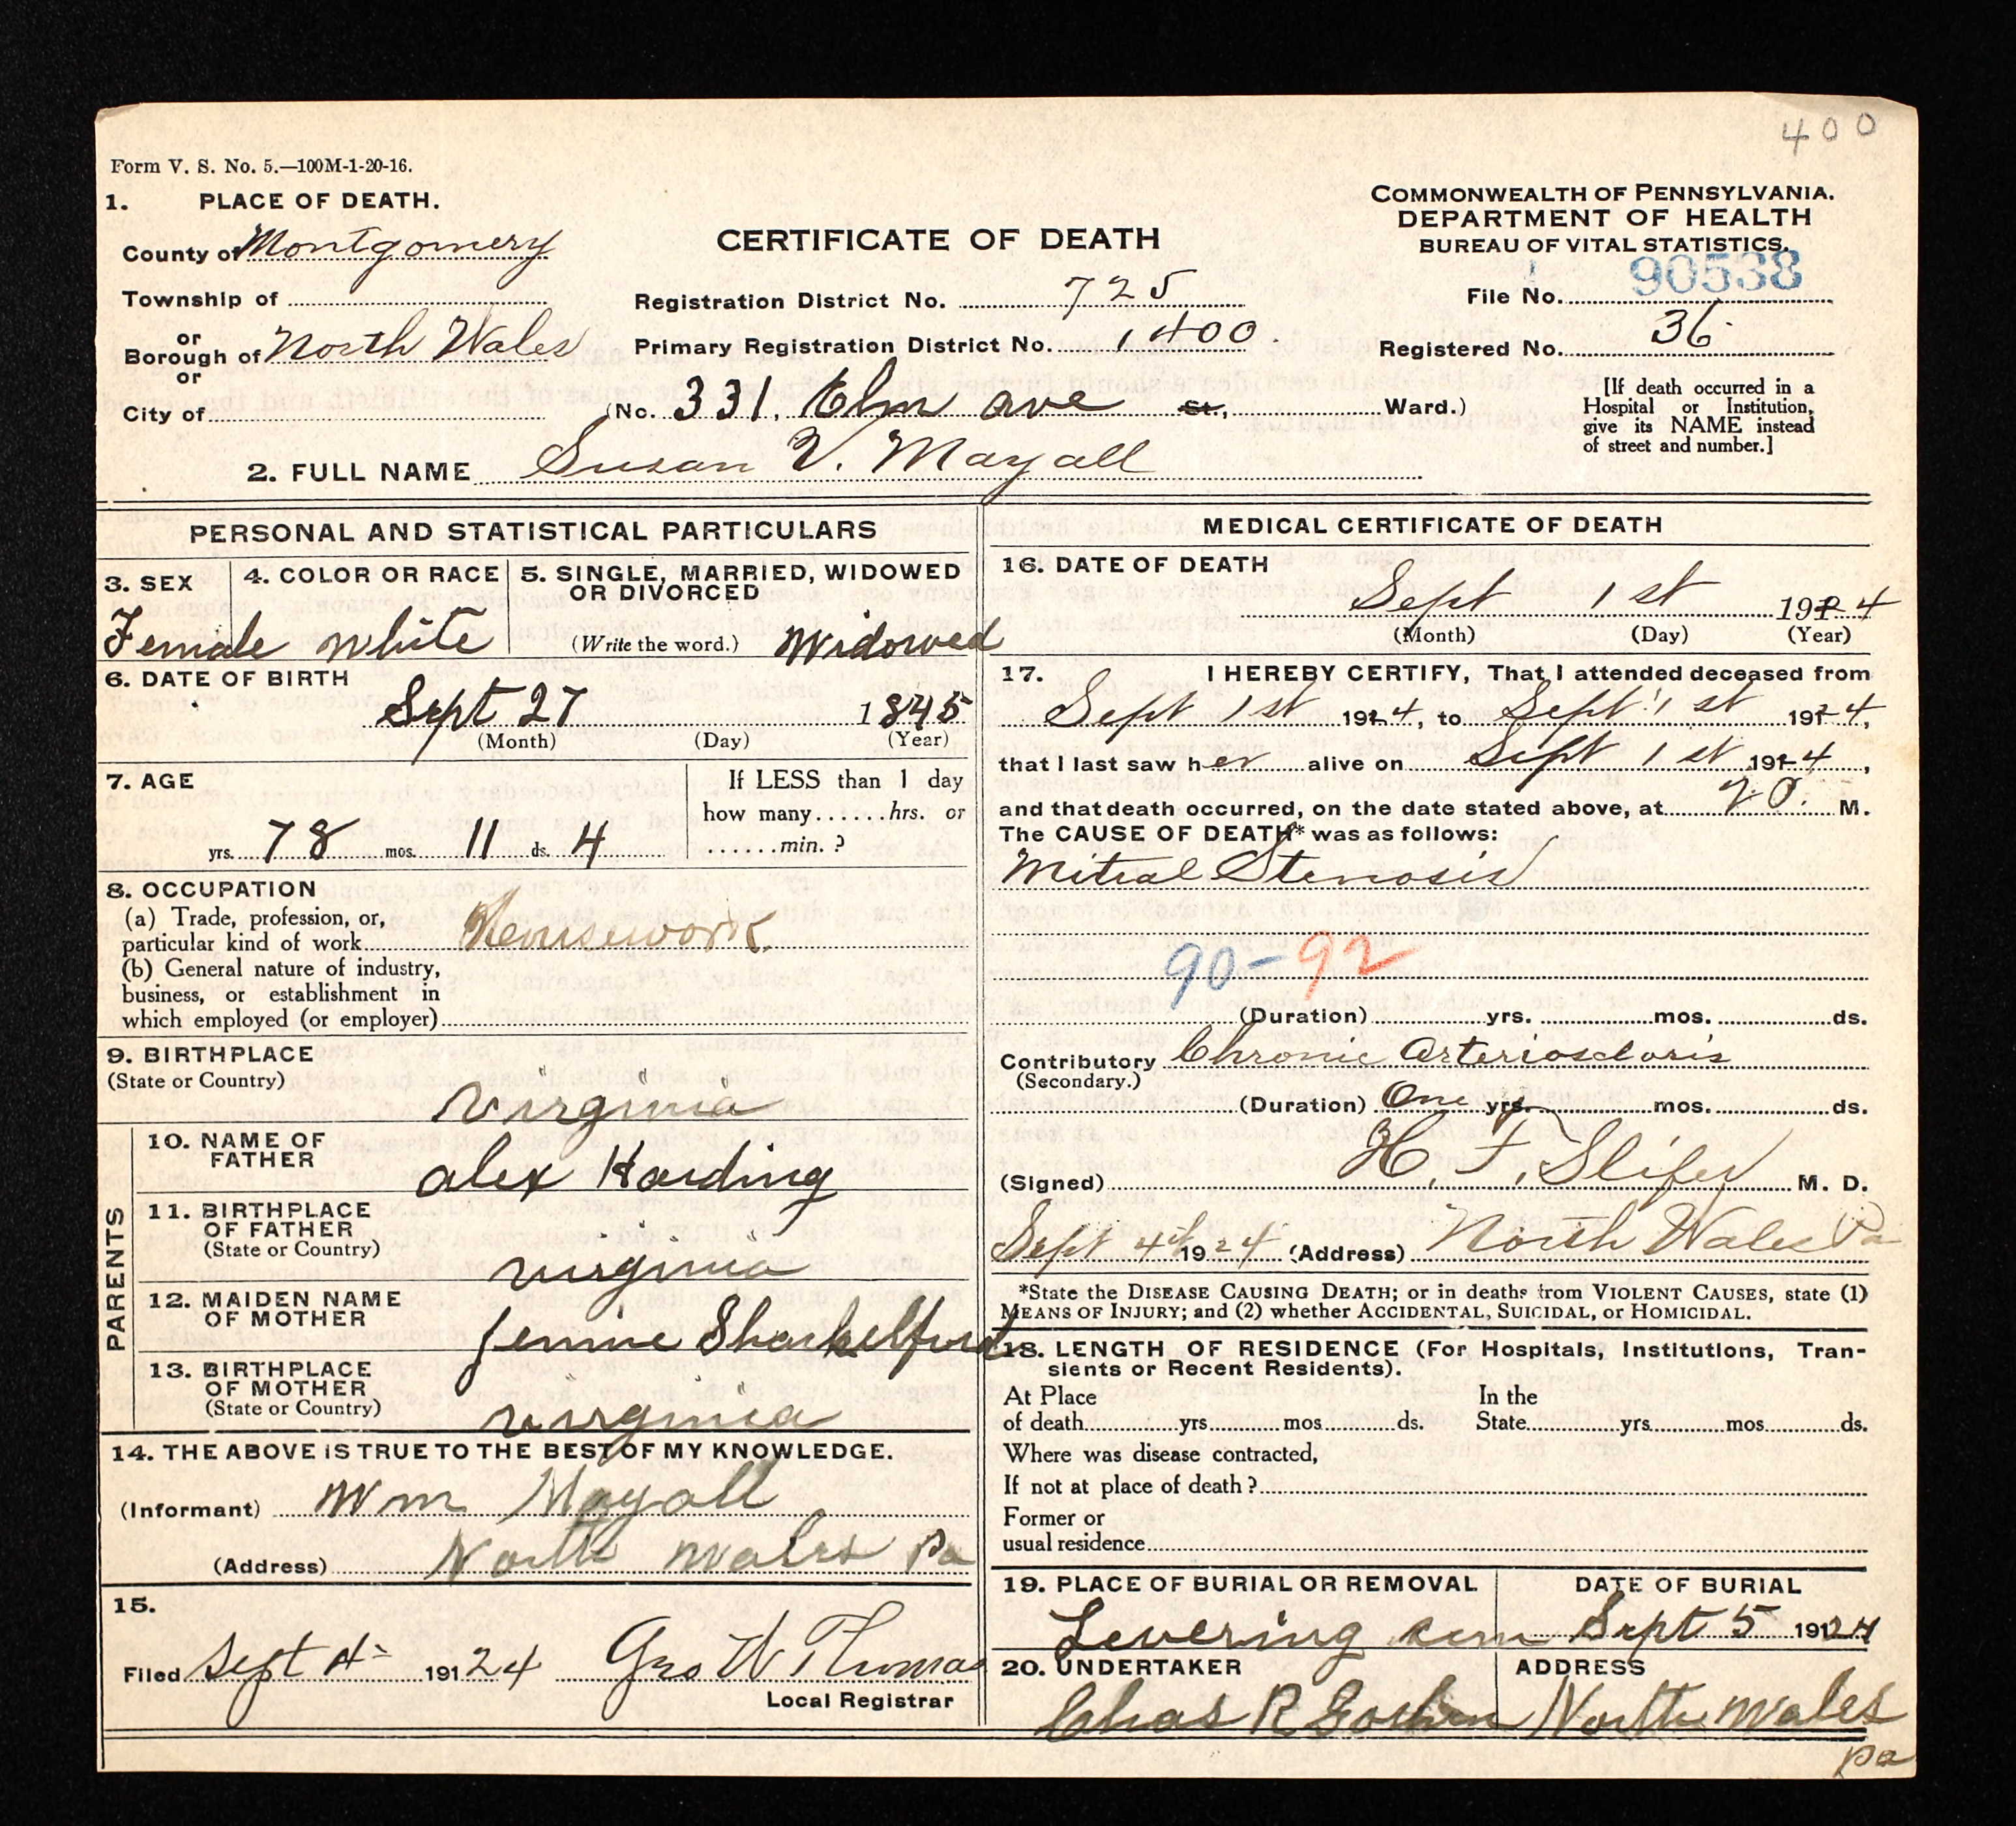 400
Form V. S. No. 5.—100M-1-20-16.
1. PLACE OF DEATH.
County of Montgomery
Township of
or
Borough of North Wales
or
City of
CERTIFICATE OF DEATH
Registration District No. 725
Primary Registration District No. 1400.
(No. 331, Elm ave St., Ward.)
COMMONWEALTH OF PENNSYLVANIA.
DEPARTMENT OF HEALTH
BUREAU OF VITAL STATISTICS.
File No. 90538
Registered No. 36
[If death occurred in a
Hospital or Institution,
give its NAME instead
of street and number.]
2. FULL NAME Susan V. Mayall
PERSONAL AND STATISTICAL PARTICULARS
3. SEX
Female
4. COLOR OR RACE
White
5. SINGLE, MARRIED, WIDOWED
OR DIVORCED
(Write the word.) Widowed
6. DATE OF BIRTH
Sept 27 1845
(Month) (Day) (Year)
7. AGE
yrs. 78 mos. 11 ds. 4
If LESS than 1 day
how many......hrs. or
......min. ?
8. OCCUPATION
(a) Trade, profession, or,
particular kind of work Housework
(b) General nature of industry,
business, or establishment in
which employed (or employer)
9. BIRTHPLACE
(State or Country)
Virginia
PARENTS
10. NAME OF
FATHER
Alex Harding
11. BIRTHPLACE
OF FATHER
(State or Country)
Virginia
12. MAIDEN NAME
OF MOTHER
Jennie Sharkelford
13. BIRTHPLACE
OF MOTHER
(State or Country)
Virginia
14. THE ABOVE IS TRUE TO THE BEST OF MY KNOWLEDGE.
(Informant) Wm Mayall
(Address) North Wales Pa
15.
Filed Sept 4 191 24 Geo W Thomas
Local Registrar
MEDICAL CERTIFICATE OF DEATH
16. DATE OF DEATH
Sept 1st 1924
(Month) (Day) (Year)
17. I HEREBY CERTIFY, That I attended deceased from
Sept 1st 1924, to Sept 1st 1924,
that I last saw her alive on Sept 1st 1924,
and that death occurred, on the date stated above, at M.
The CAUSE OF DEATH* was as follows:
Mitral Stenosis
90-92
(Duration) yrs. mos. ds.
Contributory Chronic Arterioscloris
(Secondary.)
(Duration) One yrs. mos. ds.
(Signed) H. F. Slifer M. D.
Sept 4th 1924 (Address) North Wales Pa
*State the DISEASE CAUSING DEATH; or in deaths from VIOLENT CAUSES, state (1)
MEANS OF INJURY; and (2) whether ACCIDENTAL, SUICIDAL, or HOMICIDAL.
18. LENGTH OF RESIDENCE (For Hospitals, Institutions, Tran-
sients or Recent Residents).
At Place
of death yrs mos ds.
In the
State yrs mos ds.
Where was disease contracted,
If not at place of death ?
Former or
usual residence
19. PLACE OF BURIAL OR REMOVAL
Levering cem
DATE OF BURIAL
Sept 5 1924
20. UNDERTAKER
Chas R
ADDRESS
North Wales
Pa